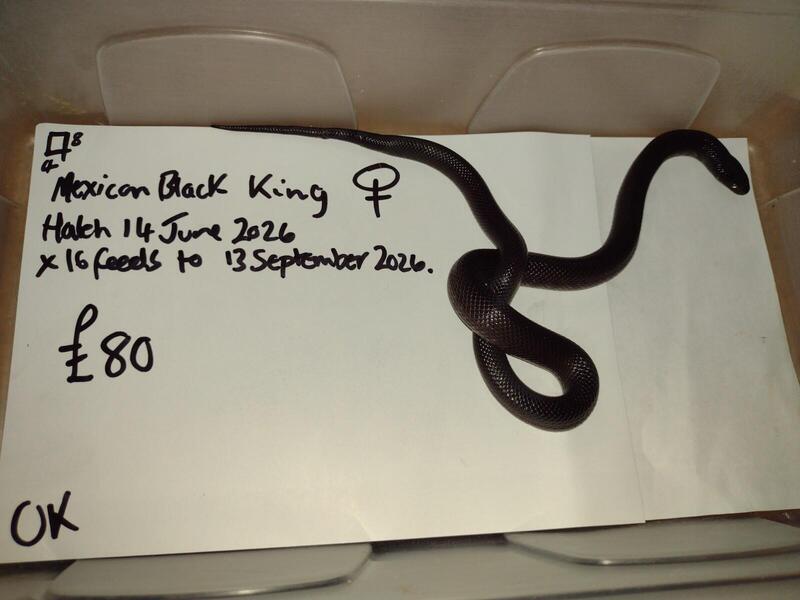 8
4
Mexican Black King ♀
Hatch 14 June 2026
x 16 feeds to 13 September 2026.
£80
OK